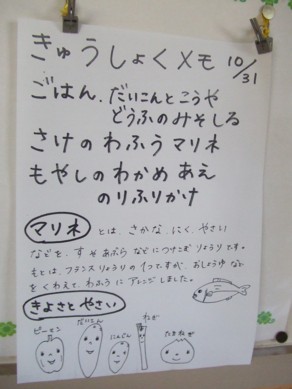 きゅうしょくメモ 10/31
ごはん、だいこんとこうや
どうふのみそしる
さけのわふうマリネ
もやしのわかめあえ
のりふりかけ
マリネ とは、さかな、にく、やさい
などを、すやあぶらなどにつけこむりょうりです。
もとは、フランスりょうりの1つですが、おしょうゆなど
をくわえて、わふうにアレンジしました。
きよさとやさい
ピーマン だいこん にんじん ねぎ たまねぎ